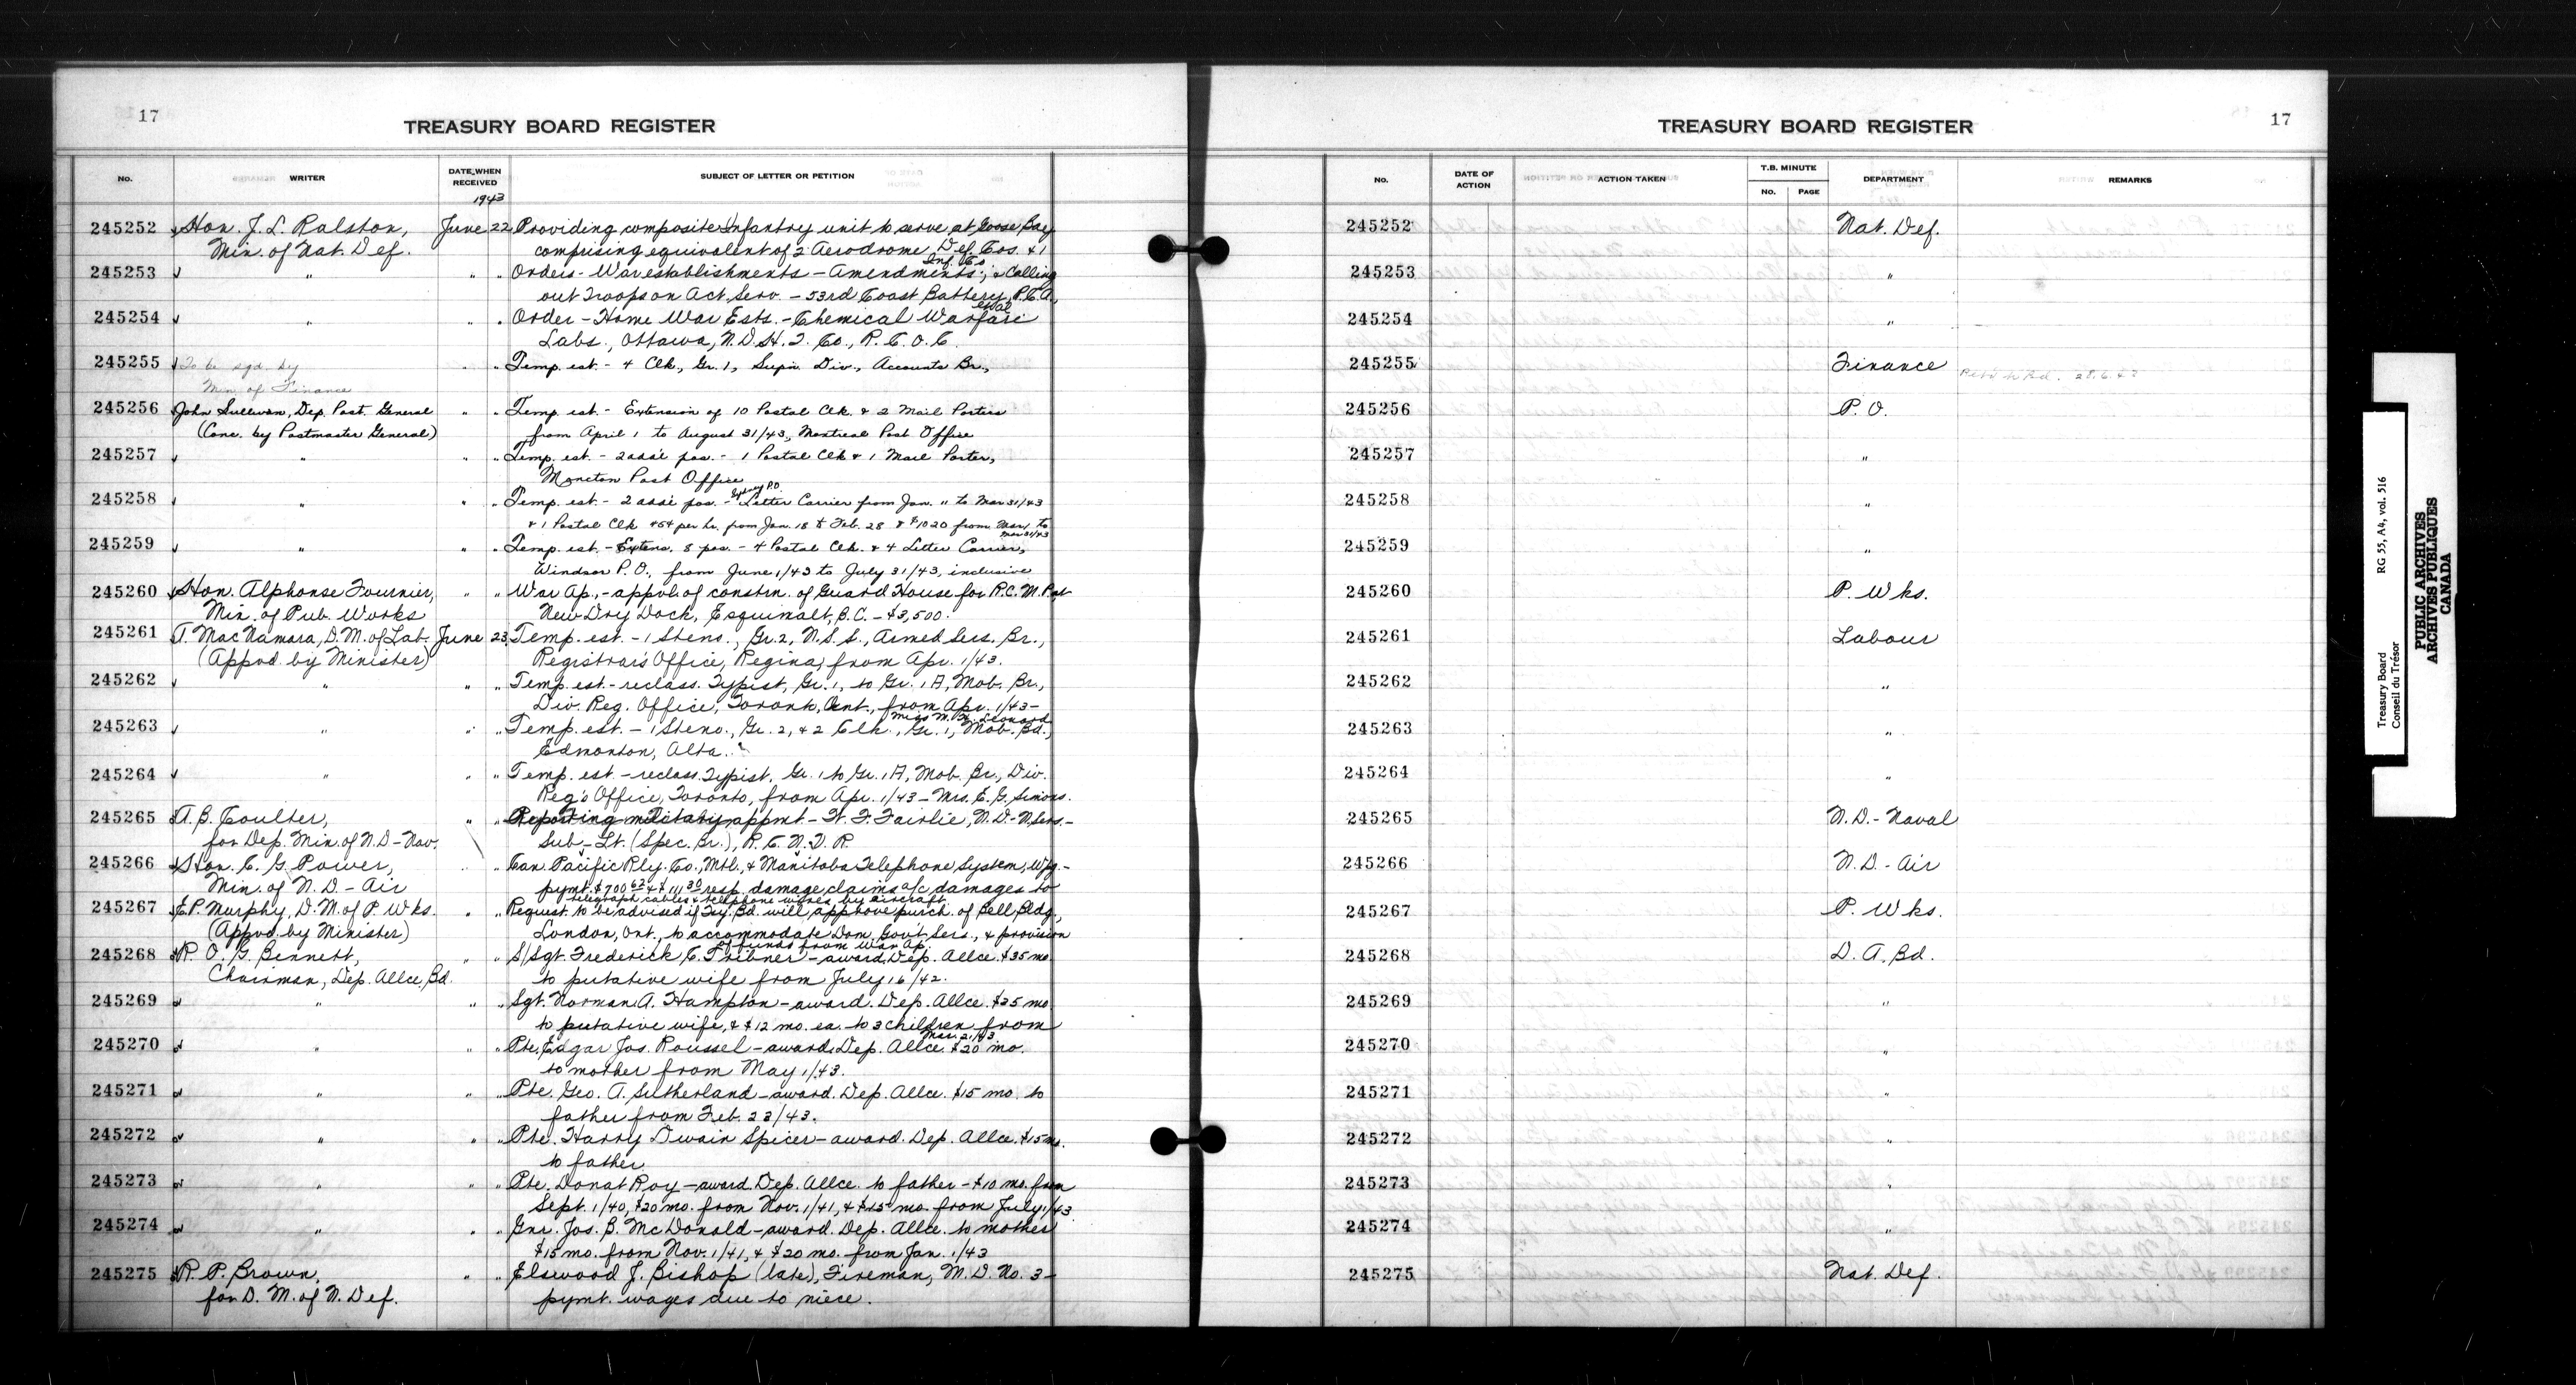 17
TREASURY BOARD REGISTER
No. WRITER DATE WHEN RECEIVED SUBJECT OF LETTER OR PETITION
1943
245252 Hon. J. L. Ralston, June 22 Providing composite Infantry unit to serve at Goose Bay
Min. of Nat. Def. comprising equivalent of 2 Aerodrome Def. Cos. & 1
Inf. Co.
245253 " " " Orders - War establishments - Amendments, & Calling
out Troops on Act. Serv. - 53rd Coast Battery, R.C.A.,
et al
245254 " " " Order - Home War Ests. - Chemical Warfare
Labs., Ottawa, N.D.H.Q. Co., R.C.O.C.
245255 To be sgd. by " " Temp. est. - 4 Clk., Gr. 1, Supn. Div., Accounts Br.,
Min. of Finance
245256 John Sullivan, Dep. Post. General " " Temp. est. - Extension of 10 Postal Clk. & 2 Mail Porters
(Conc. by Postmaster General) from April 1 to August 31/43, Montreal Post Office
245257 " " " Temp. est. - 2 add'l pos. - 1 Postal Clk & 1 Mail Porter,
Moncton Post Office
Sydney P.O.
245258 " " " Temp. est. - 2 add'l pos. - Letter Carrier from Jan. 11 to Mar 31/43
& 1 Postal Clk 45¢ per hr. from Jan. 18 to Feb. 28 & $1020 from Mar. 1 to
Mar 31/43
245259 " " " Temp. est. - Extens. 8 pos. - 4 Postal Clk. & 4 Letter Carrier,
Windsor P.O., from June 1/43 to July 31/43, inclusive
245260 Hon. Alphonse Fournier, " " War Ap. - appvl. of constrn. of Guard House for R.C.M.P. at
Min. of Pub. Works New Dry Dock, Esquimalt, B.C. - $3,500.
245261 A. MacNamara, D.M. of Lab. June 23 Temp. est. - 1 Steno., Gr. 2, N.S.S., Armed Sers. Br.,
(Appvd. by Minister) Registrar's Office, Regina, from Apr. 1/43.
245262 " " " Temp. est. - reclass. Typist, Gr. 1, to Gr. 1A, Mob. Br.,
Div. Reg. Office, Toronto, Ont., from Apr. 1/43 -
Miss M. Leonard
245263 " " " Temp. est. - 1 Steno., Gr. 2, & 2 Clk., Gr. 1, Mob. Bd.,
Edmonton, Alta.
245264 " " " Temp. est. - reclass. Typist, Gr. 1 to Gr. 1A, Mob. Br., Div.
Reg's Office, Toronto, from Apr. 1/43 - Mrs. E. G. Simons.
245265 A. B. Coulter, " " Reporting military appmt - W. F. Fairlie, N.D.-N. Sers. -
for Dep. Min. of N.D-Nav. Sub-Lt. (Spec. Br.), R.C.N.V.R.
245266 Hon. C. G. Power, " " Can. Pacific Rly. Co., Mtl., & Manitoba Telephone System, Wpg. -
Min. of N.D - Air pymt. $700.62 & $111.30 resp. damage claims a/c damages to
telegraph cables & telephone wires by aircraft.
245267 E.P. Murphy, D.M. of P. Wks. " " Request to be advised if Tsy. Bd. will approve purch. of Bell Bldg.,
(Appvd. by Minister) London, Ont., to accommodate Dom. Gov't Sers., & provision
of funds from War Ap.
245268 R. O. G. Bennett, " " S/Sgt. Frederick C. Tribner - award. Dep. Allce. $35 mo
Chairman, Dep. Allce. Bd. to putative wife from July 16/42.
245269 " " " Sgt. Norman A. Hampton - award. Dep. Allce. $25 mo
to putative wife, & $12 mo. ea. to 3 children from
Mar. 21/43
245270 " " " Pte. Edgar Jos. Roussel - award. Dep. Allce. $20 mo.
to mother from May 1/43.
245271 " " " Pte. Geo. A. Sutherland - award. Dep. Allce. $15 mo. to
father from Feb. 23/43.
245272 " " " Pte. Harry Dwain Spicer - award. Dep. Allce. $15 mo.
to father.
245273 " " " Pte. Donat Roy - award. Dep. Allce. to father - $10 mo. from
Sept. 1/40, $20 mo. from Nov. 1/41, & $15 mo. from July 1/43.
245274 " " " Gnr. Jos. B. McDonald - award. Dep. Allce. to mother
$15 mo. from Nov. 1/41, & $20 mo. from Jan. 1/43
245275 R. P. Brown, " " Elswood J. Bishop (late), Fireman, M.D. No. 3 -
for D. M. of N. Def. pymt. wages due to niece.
17
TREASURY BOARD REGISTER
No. DATE OF ACTION ACTION TAKEN T.B. MINUTE No. PAGE DEPARTMENT REMARKS
245252 Nat. Def.
245253 "
245254 "
245255 Finance
245256 P. O.
245257 "
245258 "
245259 "
245260 P. Wks.
245261 Labour
245262 "
245263 "
245264 "
245265 N.D.-Naval
245266 N.D.-Air
245267 P. Wks.
245268 D. A. Bd.
245269 "
245270 "
245271 "
245272 "
245273 "
245274 "
245275 Nat. Def.
Treasury Board RG 55, A4, vol. 516
Conseil du Trésor
PUBLIC ARCHIVES
ARCHIVES PUBLIQUES
CANADA